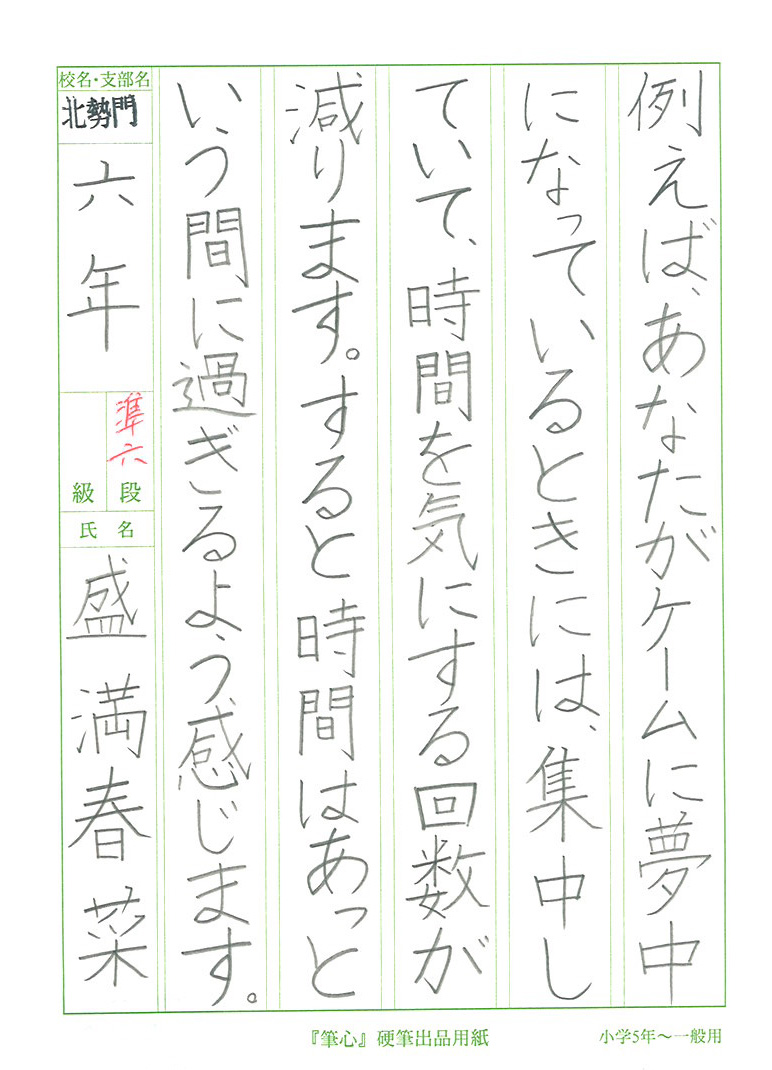 例えば、あなたがケームに夢中
になっているときには、集中し
ていて、時間を気にする回数が
減ります。すると時間はあっと
いう間に過ぎるよう感じます。
校名・支部名
北勢門
六年
準六
段
級
氏名
盛満春菜
『筆心』硬筆出品用紙
小学5年～一般用